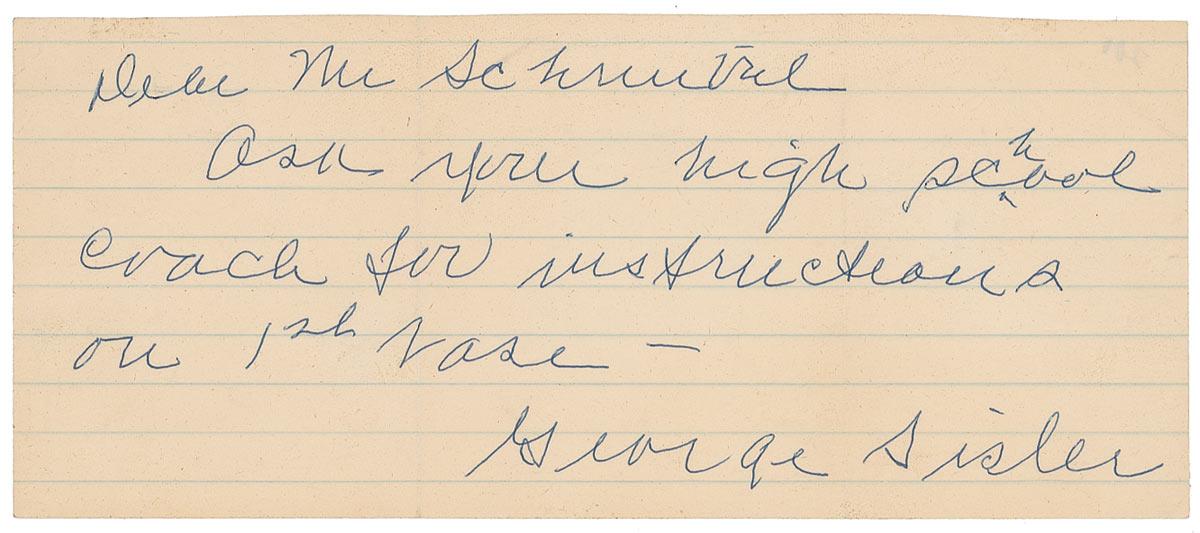 Dear Mr
Ask your high school
coach for instructions
on 1st base —
George Sisler